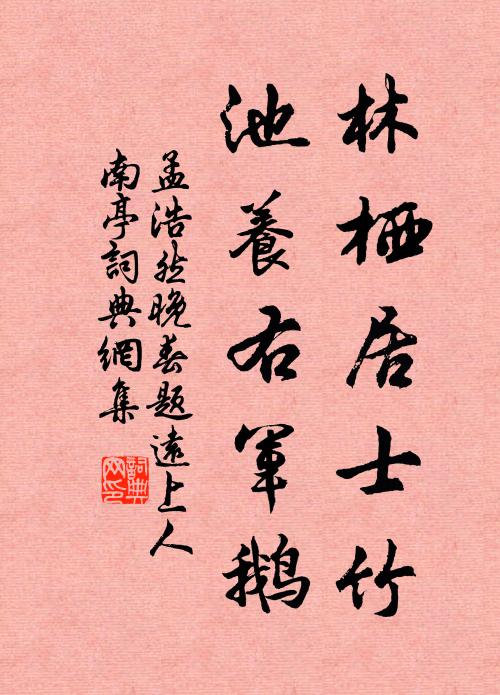 林栖居士竹
池養右軍鵝
孟浩然晚春題遠上人
南亭詞典網集
詞典
网印